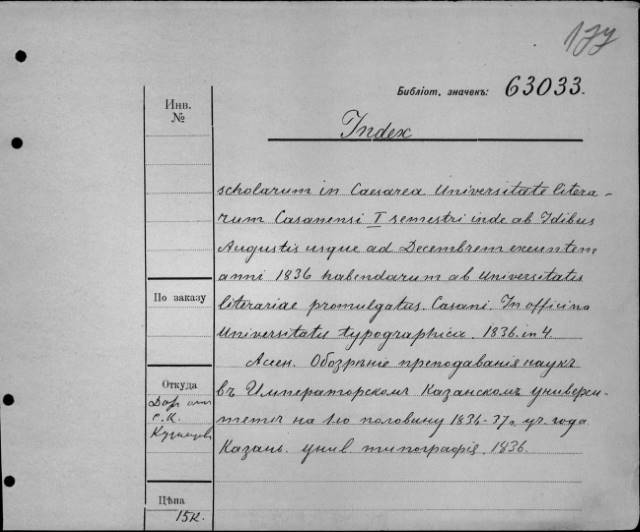 177
Библіот. значекъ: 63033.
Инв.
№
Index
scholarum in Caesarea Universitate litera-
rum Casanensi I semestri inde ab Idibus
Augustis usque ad Decembrem exeuntem
anni 1836 habendarum ab Universitatis
literariae promulgatus. Casani. In officina
Universitatis typographica. 1836. in 4.
Ассен. Обозрѣніе преподаванія наукъ
въ Императорскомъ Казанскомъ универси-
тетѣ на 1-ю половину 1836-37 г. уч. года
Казань. унив. типографія. 1836.
По заказу
Откуда
Дар отъ
С.К.
Кузнецова
Цѣна
15к.